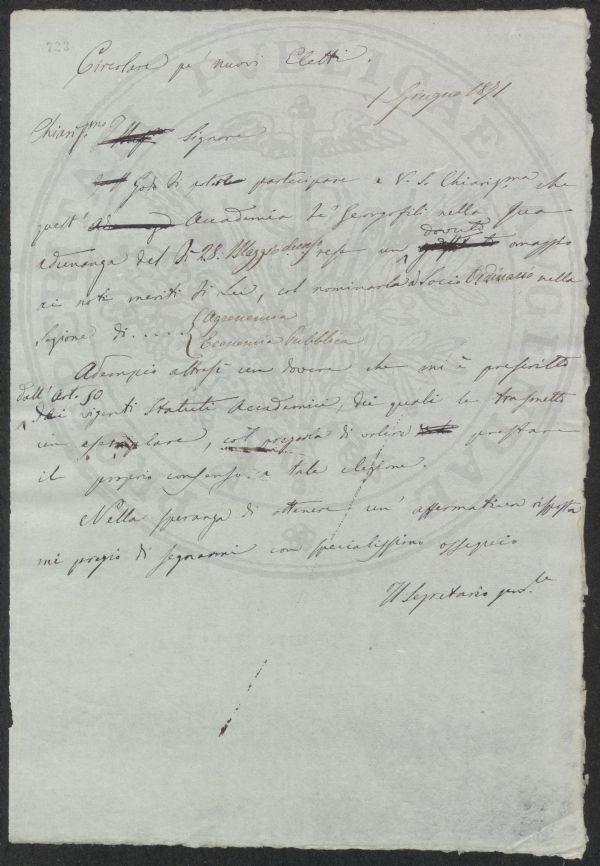 723
Circolare pe' nuovi Eletti.
1 Giugno 1871
Chiariss.mo Signore
Godo di potere partecipare a V. S. Chiariss.ma che
quest' Accademia de' Georgofili nella sua
adunanza del dì 28. Maggio decorso rese un dovuto omaggio
ai noti meriti di Lei, col nominarla a Socio Ordinario nella
Sezione di .....{ Agronomia
Economia Pubblica
Adempio altresì un dovere che mi è prescritto
dall' Arto. 50
dei vigenti Statuti Accademici, dei quali le trasmetto
un esemplare, col preg.rla di volere prestare
il proprio consenso a tale elezione.
Nella speranza di ottenere un' affermativa risposta
mi pregio di segnarmi con specialissimo ossequio
Il Segretario
PVBLICAE